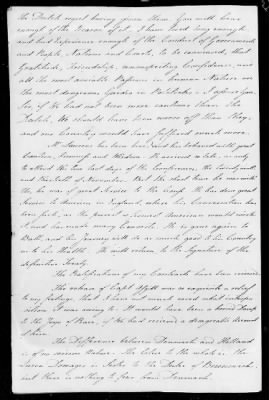 the Dutch regret having given them. You will hear
enough of the Reason of it. I have lived long enough,
and had experience enough of the Conduct of Governments
and People, Nations and Courts, to be convinced, that
Gratitude, Friendship, unsuspecting Confidence, and
all the most amiable Passions in human Nature are
the most dangerous Guides in Politicks. I assure you
Sir, if We had not been more cautious than the
Dutch, We should have been worse off than they.
and our Country would have suffered much more.
Mr. Laurens has been here and has behaved with great
Caution, Firmness and Wisdom. He arrived so late, as only
to attend the two last days of the Conferences, the twenty ninth
and thirtieth of November. But the short time he was with
Us, he was of great Service to the Cause. He has done great
Service to America in England, where his Conversation has
been such, as the purest & firmest American would wish
it, and has made many Converts. He is gone again to
Bath, and his Journey will do as much good to his Country
as to his Health. He will return to the Signature of the
definitive Treaty.
The Ratification of my Contracts have been received.
The release of Capt. Asgill was so exquisite a relief
to my feelings, that I have not much cared what interpo-
sition it was owing to. It would have been a horrid Damp
to the Joys of Peace, if We had received a disagreeable Account
of him.
The Difference between Denmark and Holland
is of no serious Nature. The
is a Sister to the Duke of Brunswick.
but there is nothing to fear from Denmark.